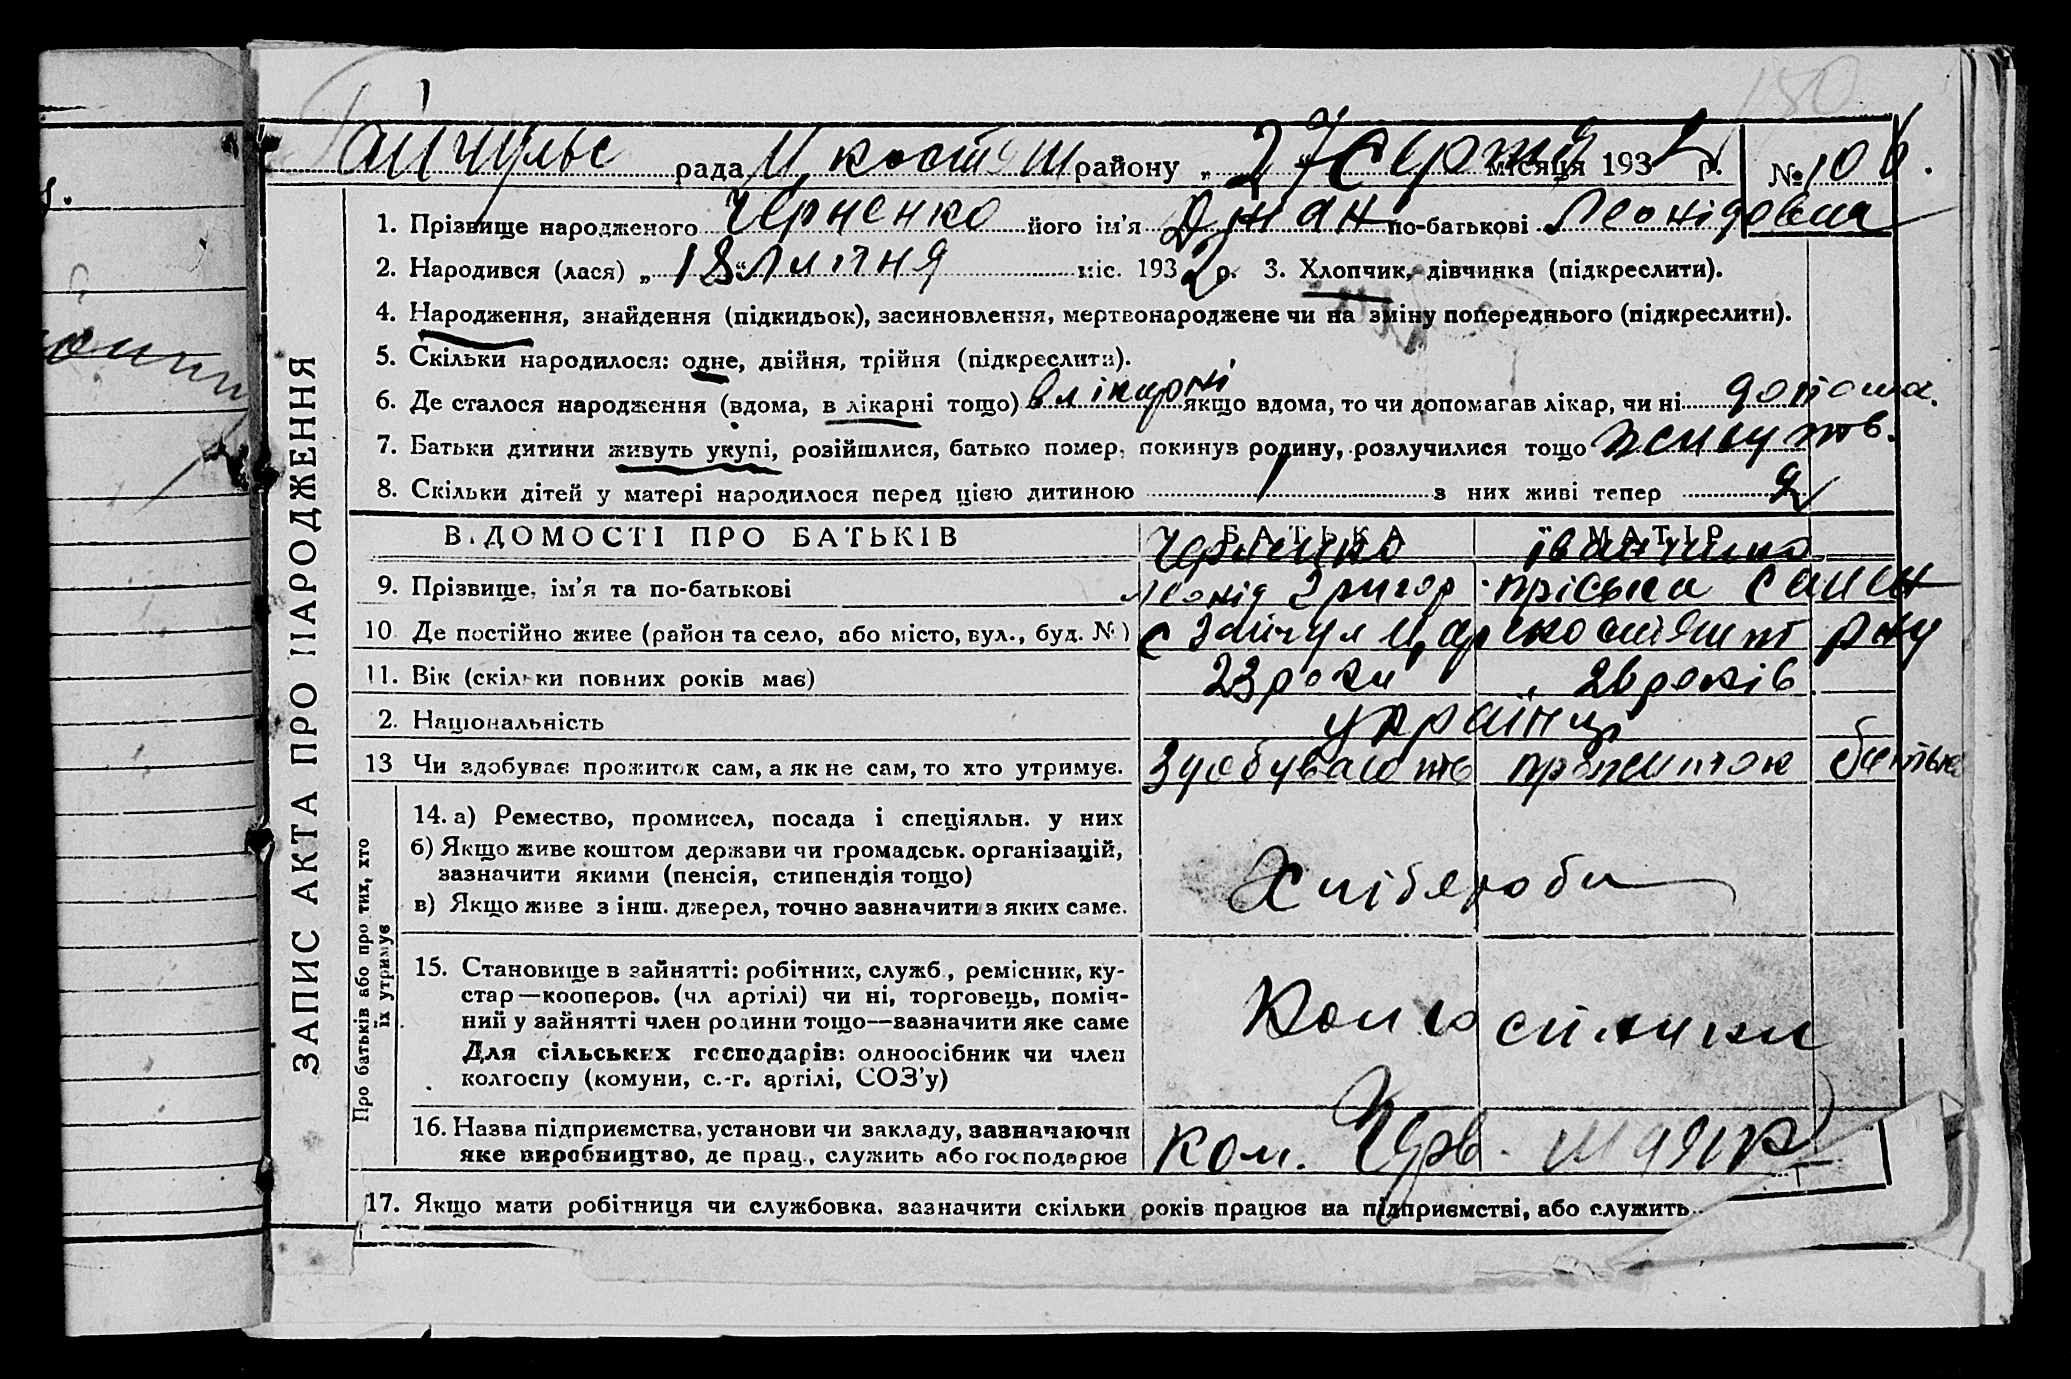 180
Гайчульс рада М костян району „27 Серпня місяця 1932 р. № 106.
1. Прізвище народженого Черненко його ім'я Джан по-батькові Леонідовна
2. Народився (лася) „18" Липня міс. 1932 р. 3. Хлопчик, дівчинка (підкреслити).
4. Народження, знайдення (підкидьок), засиновлення, мертвонароджене чи на зміну попереднього (підкреслити).
5. Скільки народилося: одне, двійня, трійня (підкреслити).
6. Де сталося народження (вдома, в лікарні тощо) в лікарні якщо вдома, то чи допомагав лікар, чи ні
7. Батьки дитини живуть укупі, розійшлися, батько помер, покинув родину, розлучилися тощо живуть.
8. Скільки дітей у матері народилося перед цією дитиною 1 з них живі тепер
ВІДОМОСТІ ПРО БАТЬКІВ БАТЬКА МАТІР
Черненко Іванченко
9. Прізвище, ім'я та по-батькові Леонід Григор Пріська
10. Де постійно живе (район та село, або місто, вул., буд. №) с Гайчул рну
11. Вік (скільки повних років має) 23 роки 26 років
2. Національність українці
13 Чи здобуває прожиток сам, а як не сам, то хто утримує. Здобувають прожиток батька
14. а) Ремество, промисел, посада і спеціяльн. у них
б) Якщо живе коштом держави чи громадськ. організацій,
зазначити якими (пенсія, стипендія тощо)
Хліброби
в) Якщо живе з інш. джерел, точно зазначити з яких саме.
15. Становище в зайнятті: робітник, служб., ремісник, ку-
стар—кооперов. (чл артілі) чи ні, торговець, поміч-
ний у зайнятті член родини тощо—зазначити яке саме
Колгоспники
Для сільських господарів: одноосібник чи член
колгоспу (комуни, с.-г. артілі, СОЗ'у)
16. Назва підприємства, установи чи закладу, зазначаючи
яке виробництво, де прац., служить або господарює кол. Черв. маяк
17. Якщо мати робітниця чи службовка, зазначити скільки років працює на підприємстві, або служить
ЗАПИС АКТА ПРО НАРОДЖЕННЯ
Про батьків або про тих, хто
їх утримує